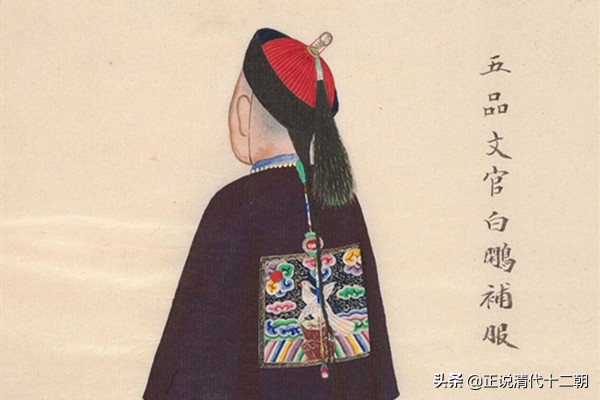 五品文官白鷴補服
头条 @正说清代十二朝